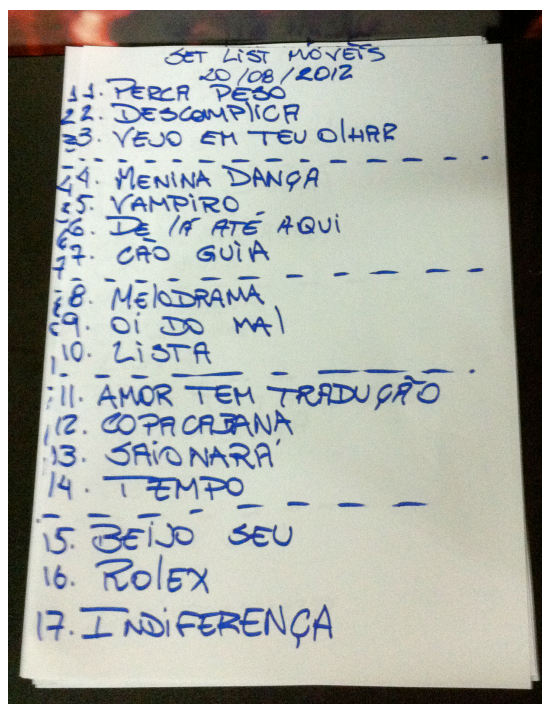 SET LIST MÓVEIS
20/08/2012
1. PERCA PESO
2. DESCOMPLICA
3. VEJO EM TEU OLHAR
4. MENINA DANÇA
5. VAMPIRO
6. DE LÁ ATÉ AQUI
7. CÃO GUIA
8. MELODRAMA
9. OI DO MAL
10. LISTA
11. AMOR TEM TRADUÇÃO
12. COPACABANA
13. SAIONARÁ
14. TEMPO
15. BEIJO SEU
16. ROLEX
17. INDIFERENÇA